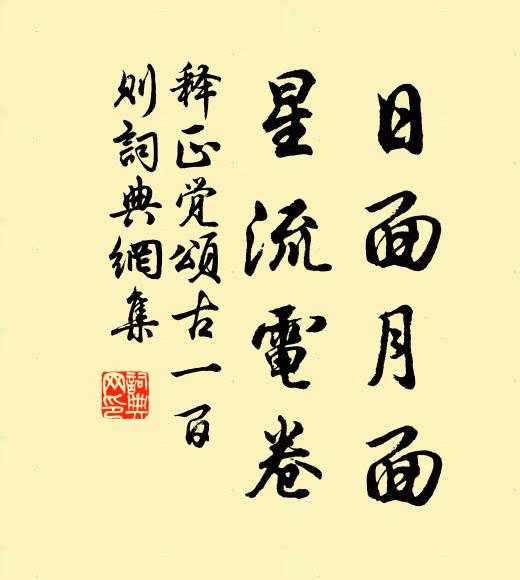 日面月面
星流電卷
释正觉頌古一百
则詞典網集
詞典
网印